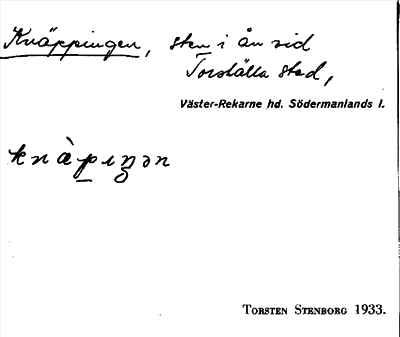 Knäppingen, sten i ån vid
Torshälla stad,
Väster-Rekarne hd. Södermanlands l.
knàpıŋən
TORSTEN STENBORG 1933.